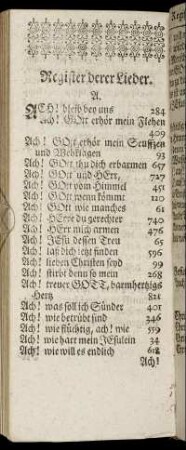 Register derer Lieder.
A.
ACH! bleib bey uns 284
Ach! GOtt erhör mein Flehen
409
Ach! GOtt erhör mein Seuffzen
und Wehklagen 93
Ach! GOtt thu dich erbarmen 657
Ach! GOtt und HErr, 727
Ach! GOtt vom Himmel 451
Ach! GOtt wenn kömmt 110
Ach! GOtt wie manches 61
Ach! HErre du gerechter 740
Ach! HErr mich armen 476
Ach! JEsu dessen Treu 65
Ach! laß dich jetzt finden 596
Ach! lieben Christen seyd 99
Ach! stirbt denn so mein 268
Ach! treuer GOTT, barmhertzigs
Hertz 821
Ach! was soll ich Sünder 401
Ach! wie betrübt sind 346
Ach! wie flüchtig, ach! wie 559
Ach! wie hart mein JEsulein 34
Ach! wie will es endlich 612
Ach!